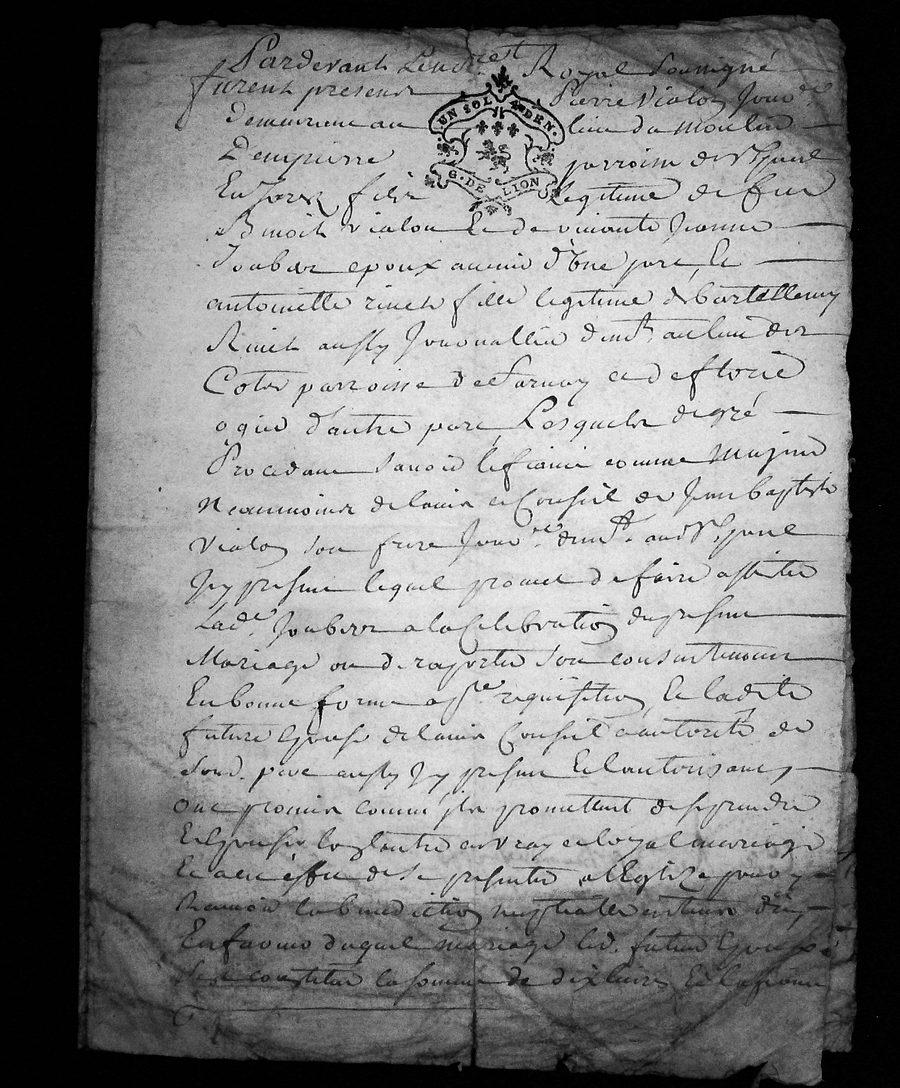 Pardevant Le not Royal soussigné
furent presens Pierre vialon Jour
Demeurant au lieu du moulin
parroisse de st
UN SOL 4 DEN.
G. DE LION
En forez fils legitime de feu
Benoit vialon et de vivante Jeanne
Joubar epoux avenir d'une part, et
antoinette rinet fille legitime de bartellemy
Rinet aussy Journallier dem.t au lieu des
Cotes parroisse de et de fleurie
ogier d'autre part Lesquels de gré
Procedant savoir le fiancé comme Majeur
Neanmoins de lavis et Conseil de Jean baptiste
vialon son frere Jour dem.t audt st
Icy present lequel promet de faire assister
Lade Joubar a la Celebration du present
Mariage ou de raporter son consentement
En bonne forme a requisition, et ladite
future Epouse de lavis Conseil et autorité de
sond. pere aussy Icy present et lautorisant
ont promis comme jls promettent de se prendre
et Epouser lun lautre en vray et loyal mariage
et a cet effet de se presenter a legtize pour y
Recevoir la benediction nuptialle
En faveur duquel mariage led. futur Epoux
se constitue la somme de dix livres et la